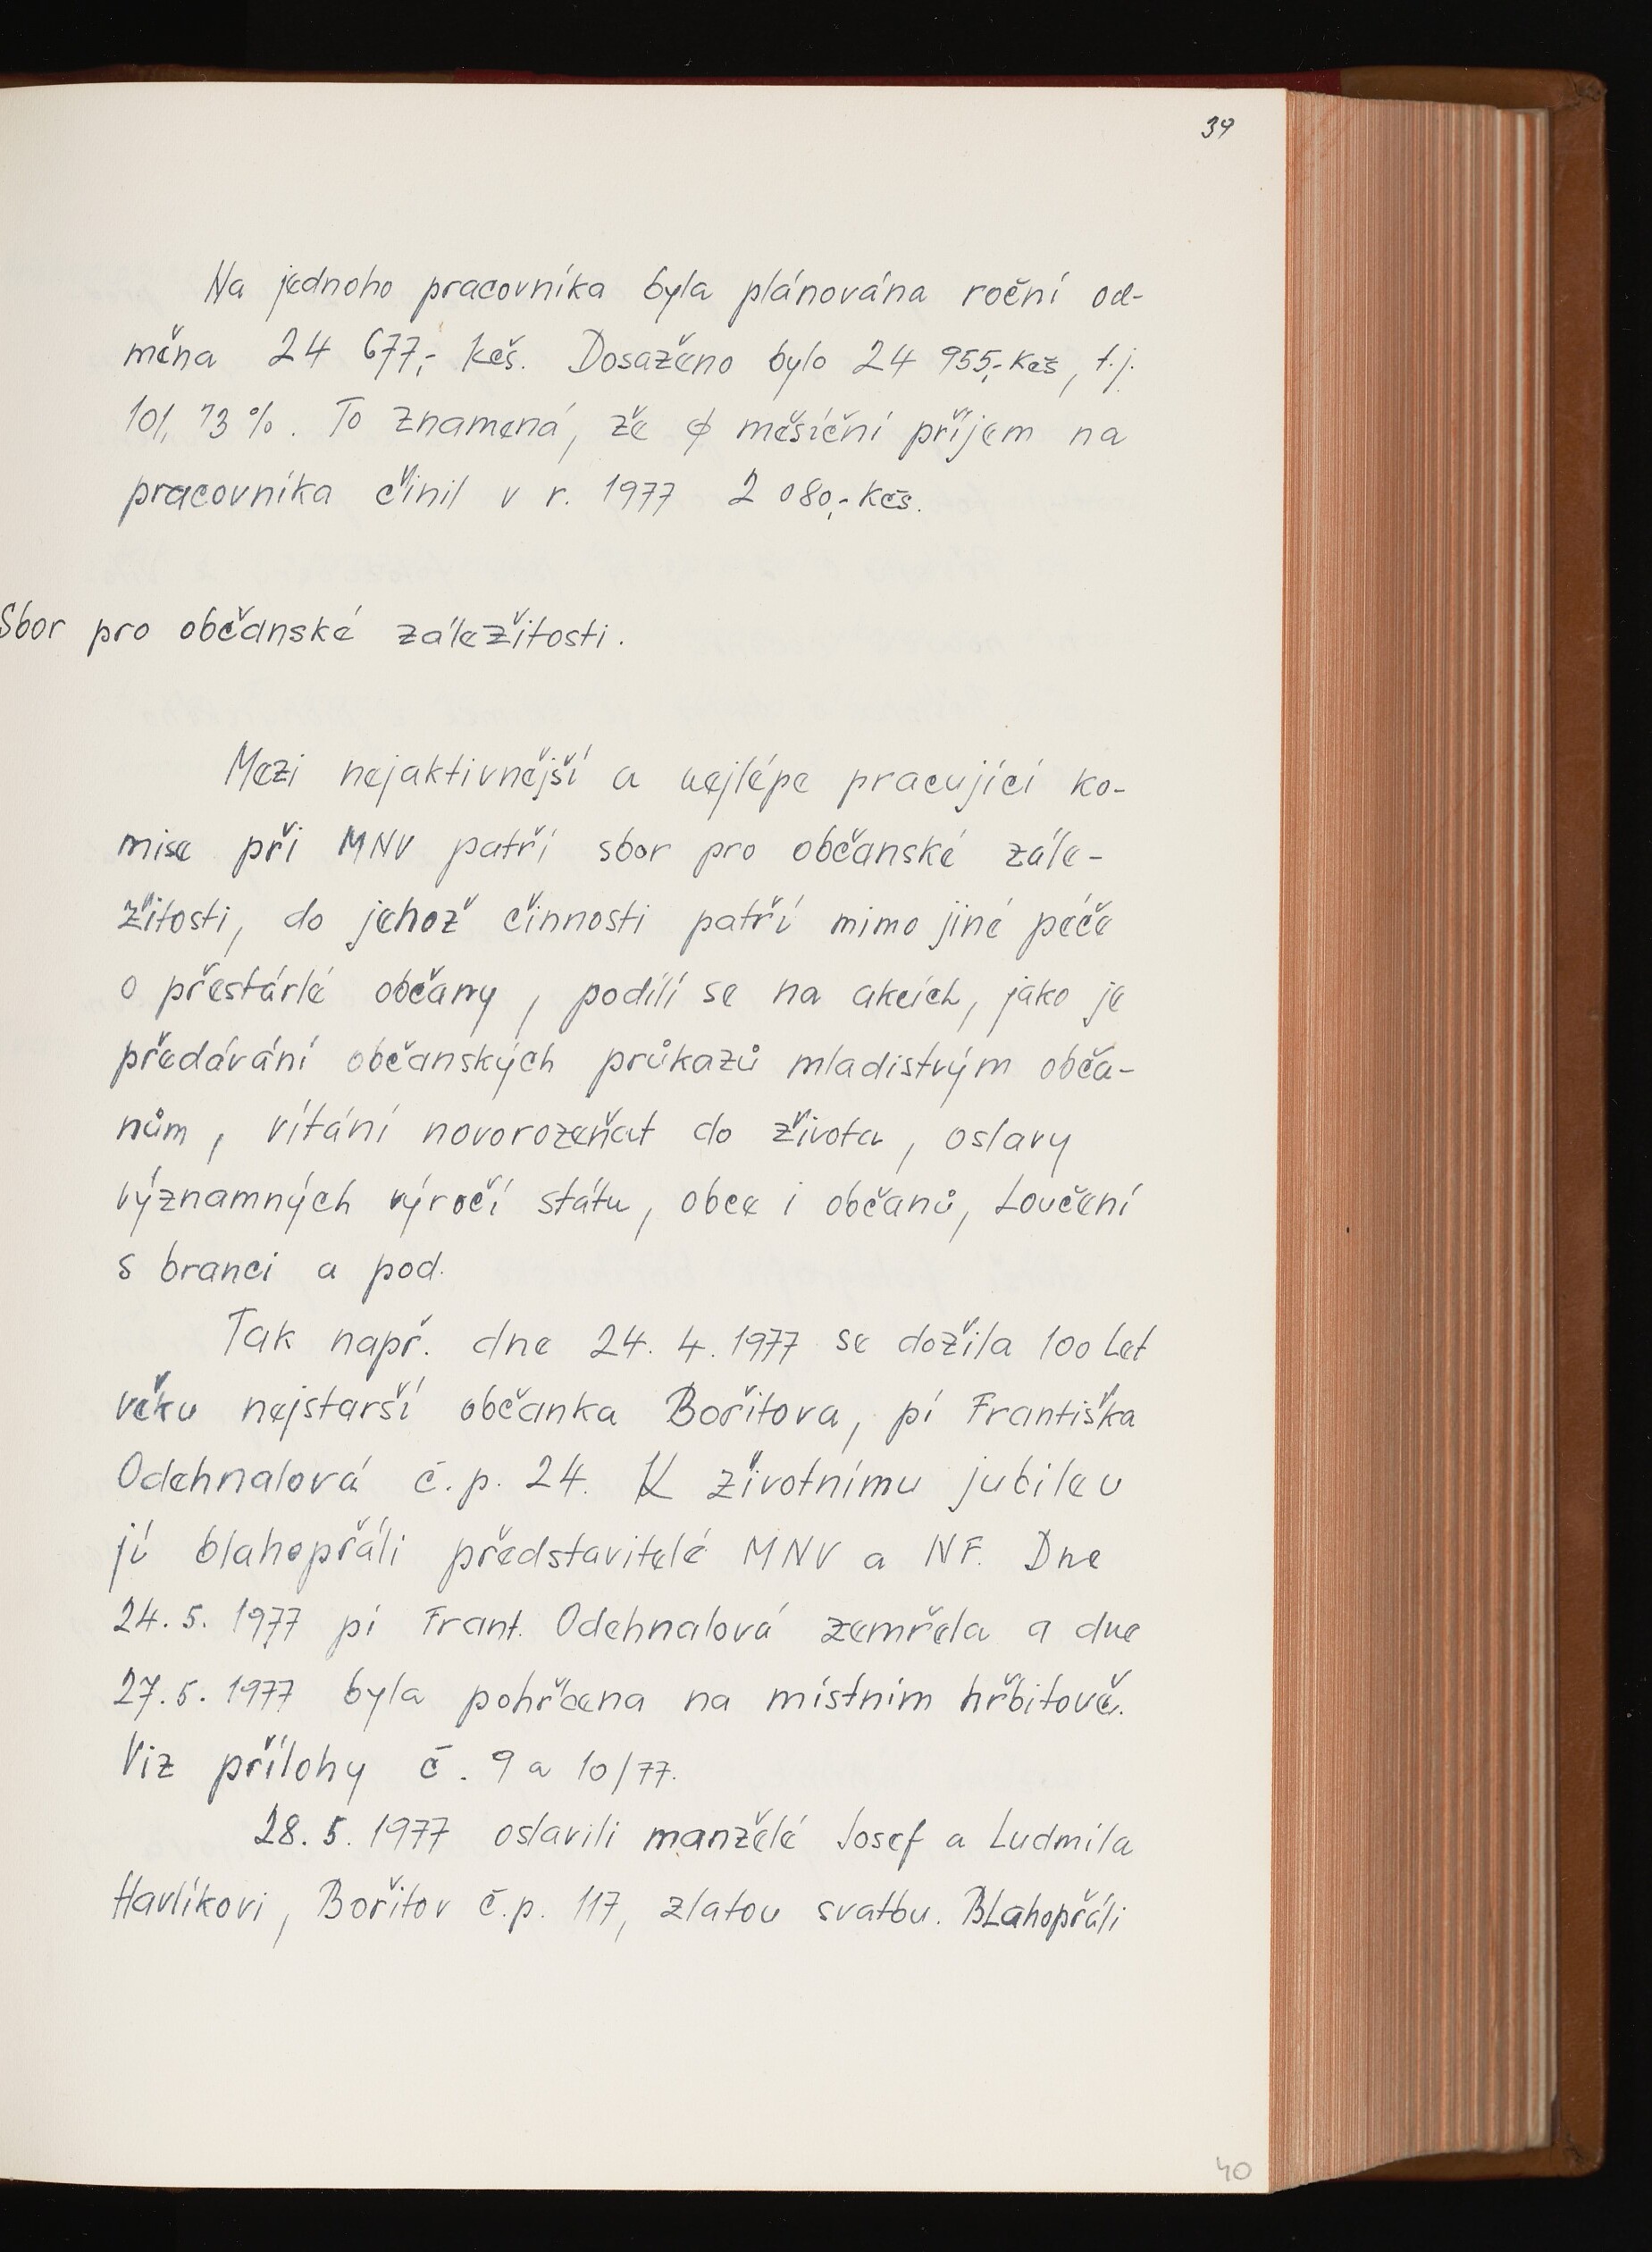 39
Na jednoho pracovníka byla plánována roční od-
měna 24 677,- Kčs. Dosaženo bylo 24 955,- Kčs, t.j.
101,13 %. To znamená, že ø měsíční příjem na
pracovníka činil v r. 1977 2 080,- Kčs.
Sbor pro občanské záležitosti.
Mezi nejaktivnější a nejlépe pracující ko-
mise při MNV patří sbor pro občanské zále-
žitosti, do jehož činnosti patří mimo jiné péče
o přestárlé občany, podílí se na akcích, jako je
předávání občanských průkazů mladistvým obča-
nům, vítání novorozeňat do života, oslavy
významných výročí státu, obce i občanů, Loučení
s branci a pod.
Tak např. dne 24. 4. 1977 se dožila 100 Let
věku nejstarší občanka Bořitova, pí Františka
Odehnalová č.p. 24. K životnímu jubileu
jí blahopřáli představitelé MNV a NF. Dne
24. 5. 1977 pí Frant. Odehnalová zemřela a dne
27. 5. 1977 byla pohřbena na místním hřbitově.
Viz přílohy č. 9 a 10/77.
28. 5. 1977 oslavili manželé Josef a Ludmila
Havlíkovi, Bořitov č.p. 117, zlatou svatbu. BLahopřáli
40